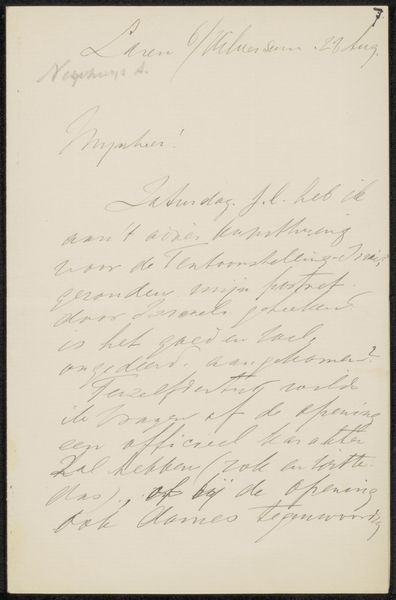 7
Laren b/ Hilversum. 29 Aug.
Neuhuys A.
Mijnheer!
Zaturdag j.l. heb ik
aan't adres
voor de Tentoonstelling
gezonden mijn portret
door Israels geteekend
is het goed en wel
ongedeerd aangekomen?
Terzelfdertijd wilde
ik vragen of de opening
een officieel karakter
zal hebben (rok en witte
das), of bij de opening
ook dames tegenwoordig